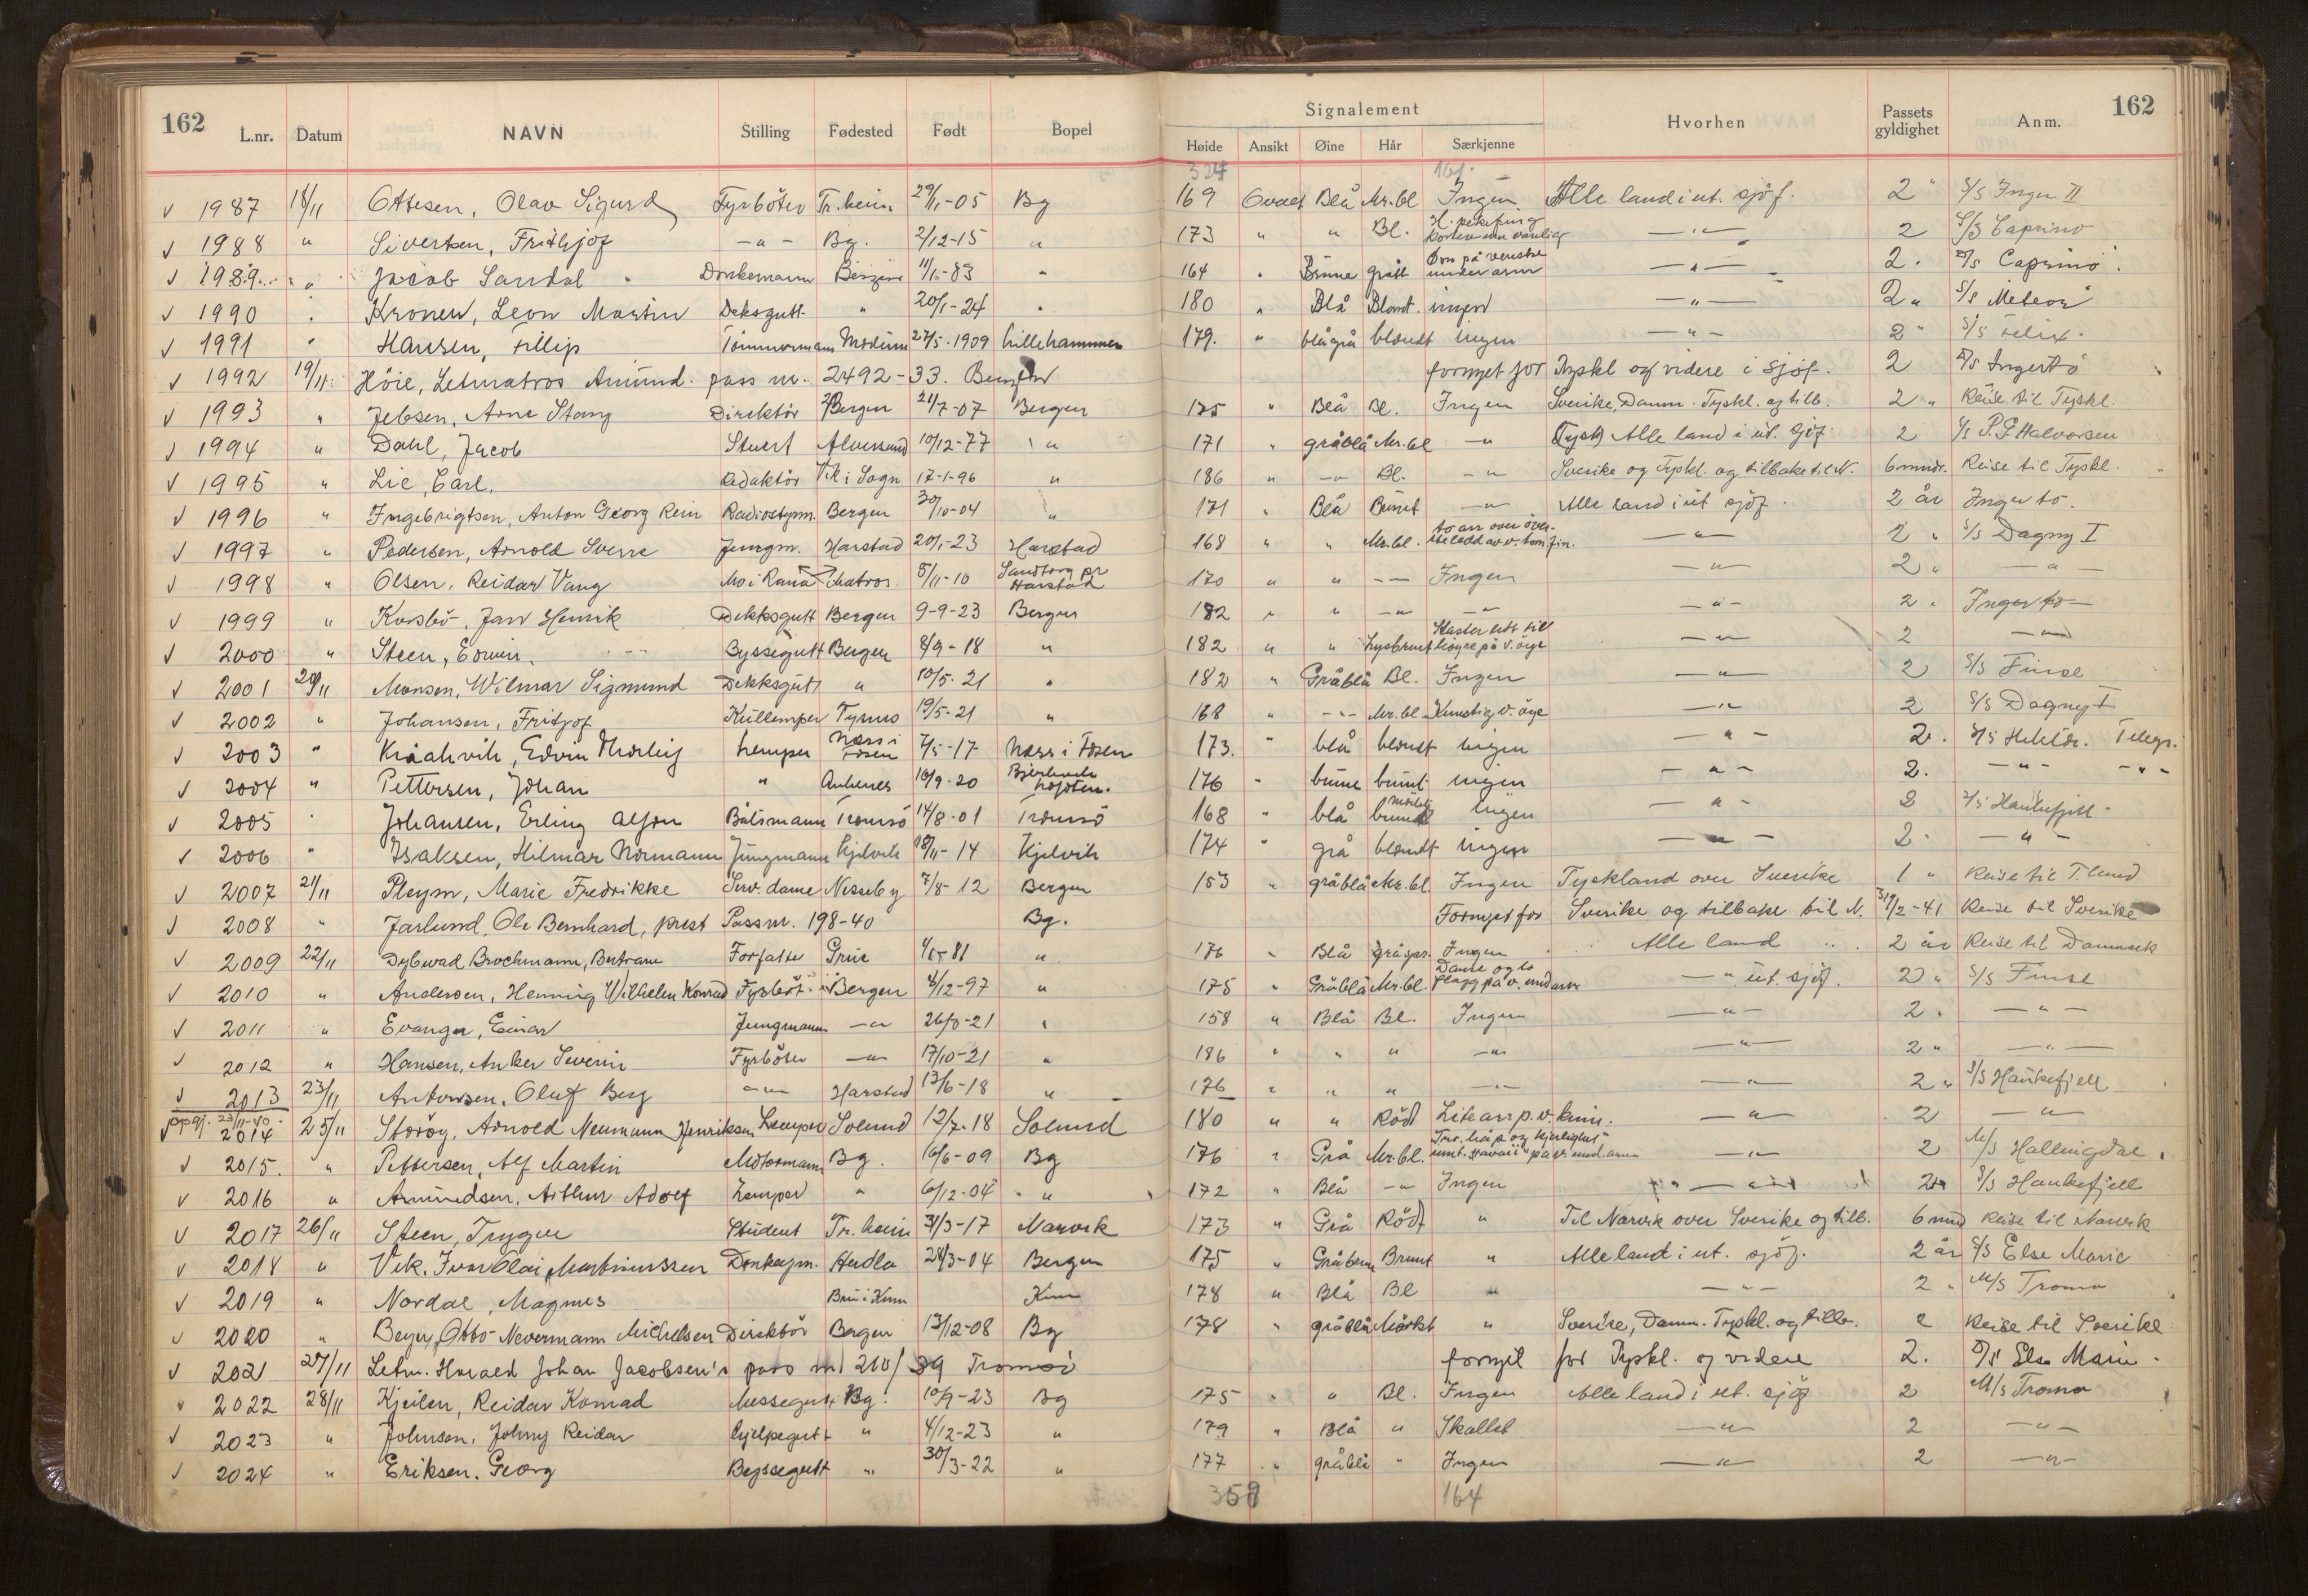 162 L.nr. Datum NAVN Stilling Fødested Født Bopel Signalement Hvorhen Passets gyldighet Anm. 162
Høide Ansikt Øine Hår Særkjenne
324 161.
√ 1987 18/11 Ottesen, Olav Sigurd Fyrböter Tr.heim 29/1-05 Bg 169 Ovalt Blå Mr.bl Ingen Alle land i ut. sjöf. 2 " S/S Inger II
√ 1988 " Sivertsen, Frithjof -"- Bg. 2/12-15 " 173 " " Bl. H. pekefing kortere enn vanlig -"- 2 S/S Caprino
√ 1989 " Jacob Sandal Donkemann Bergen 11/1-83 " 164 " Brune grått under arm -"- 2 " S/S Caprino
√ 1990 " Kronen, Leon Martin Deksgutt " 20/1-24 " 180 " Blå Blont. ingen -"- 2 " S/S Meteor
√ 1991 " Hansen, Fillip Tömmermann Modum 27/5-1909 Lillehammer 179. " blågrå blondt ingen -"- 2 " S/S Felix
√ 1992 19/11 Höie, Letmatros Amund. pass nr. 2492-33. Bergen fornyet for Tyskl og videre i sjöf. 2 S/S Ingertö
√ 1993 " Jebsen, Arne Stang Direktör Bergen 21/7-07 Bergen 175 " Blå Bl. Ingen Sverike, Danm. Tyskl. og tilb. 2 " Reise til Tyskl.
√ 1994 " Dahl, Jacob Stuert Alversund 10/12-77 " 171 " gråblå Mr.bl -" (Tysk) Alle land i ut. sjöf 2 S/S P.G. Halvorsen
√ 1995 " Lie, Carl. Redaktör Vik i Sogn 17-1-96 " 186 " -"- Bl. -" Sverike og Tyskl. og tilbake til N. 6 mndr. Reise til Tyskl.
√ 1996 " Ingebrigtsen, Anton Georg Rein Radiostyrm. Bergen 30/10-04 " 171 " Blå Brunt -"- Alle land i ut sjöf. 2 år Ingertö.
√ 1997 " Pedersen, Arnold Sverre Jungm. Harstad 20/1-23 Harstad 168 " " Mr.bl. to arr over över- ste ledd av v. tom.fin. -"- 2 " S/S Dagny I
√ 1998 " Olsen, Reidar Vang Mo i Rana Matros 5/11-10 Sandtorg pr Harstad 170 " " -"- Ingen -"- 2 " -"-
√ 1999 " Korsbö, Jan Henrik Dekksgutt Bergen 9-9-23 Bergen 182 " " -"- -"- -"- 2 " Ingertö
√ 2000 " Steen, Edwin. Byssegutt Bergen 8/9-18 " 182 " " Lysbrunt Kaster lett til höyre på v. öye -"- 2 -"-
√ 2001 20/11 Monsen, Wilmar Sigmund Dekksgutt " 10/5-21 " 182 " Gråblå Bl. Ingen -"- 2 S/S Finse
√ 2002 " Johansen, Fritjof Kullemper Tysnes 19/5-21 " 168 " -"- Mr.bl. Kunstig v. öye -"- 2 S/S Dagny I
√ 2003 " Kråakvik, Edvin Thorleif Lemper Næss i Fosen 7/5-17 Næss i Fosen 173. " blå blondt ingen -"- 2.
√ 2004 " Pettersen, Johan " Ankenes 16/9-20 Lofoten. 176 " brune brunt ingen -"- 2. -"- -"-
√ 2005 " Johansen, Erling Båtsmann Tromsö 14/8-01 Tromsö 168 " blå mörke brunt ingen -"- 2 S/S Haukefjell
√ 2006 " Isaksen, Hilmar Normann Jungmann Kjelvik 18/11-14 Kjelvik 174 " grå blondt ingen -"- 2 -"-
√ 2007 21/11 Pleym, Marie Fredrikke Serv. dame Nesseby 7/8-12 Bergen 153 " gråblå Mr.bl. Ingen Tyskland over Sverike 1 " Reise til T.land
√ 2008 " Jarlund, Ole Bernhard, prest Passnr. 198-40 Bg. Fornyet for Sverike og tilbake til N. 2-41 Reise til Sverike
√ 2009 22/11 Dybwad Brochmann, Bertram Forfatter Grue 81 " 176 " Blå gråspr. Ingen Alle land 2 år Reise til Danmark
√ 2010 " Andersen, Henning Wilhelm Konrad Fyrböt. Bergen 4/12-97 " 175 " Gråblå Mr.bl. Dame og to flagg på v. und.arm -"- ut. sjöf. 2 " S/S Finse
√ 2011 " Evanger, Einar Jungmann -"- 21 " 158 " Blå Bl. Ingen -"- 2 " -"-
√ 2012 " Hansen, Anker Severin Fyrböter -"- 17/10-21 " 186 " " " -"- -"- 2 " -"-
√ 2013 23/11 Antonsen, Oluf Berg -"- Harstad 13/6-18 " 176 " " " -"- -"- 2 " S/S Haukefjell
ppgj. 23/11-40
√ 2014 25/11 Störöy, Arnold Neumann Henriksen Lemper Solund 12/7-18 Solund 180 " " Röd Lite arr p. v. kinn. -"- 2 -"-
√ 2015. " Pettersen, Alf Martin Motormann Bg. 16/6-09 Bg 176 " Grå Mr.bl. "Tro, håp og kjerlighet" samt. Hawaii på v. und.arm -"- 2 M/S Hallingdal
√ 2016 " Amundsen, Arthur Adolf Lemper " 6/12-04 " 172 " Blå -"- Ingen -"- 2 S/S Haukefjell
√ 2017 26/11 Steen, Trygve Student Tr.heim 31/3-17 Narvik 173 " Grå Rödt " Til Narvik over Sverike og tilb. 6 mnd Reise til Narvik
√ 2018 " Vik. Ivar Olai Martinussen Donkeym. Herdla 28/3-04 Bergen 175 " Gråbrun Brunt " Alle land i ut. sjöf. 2 år S/S Else Marie
√ 2019 " Nordal, Magnus Bru i Kinn Kinn 178 " Blå Bl " -"- 2 " M/S Tromo
√ 2020 " Beyer, Otto Nevermann Michelsen Direktör Bergen 13/12-08 Bg 178 " gråblå Mörkt " Sverike, Danm. Tyskl. og tilb. 2 Reise til Sverike
√ 2021 27/11 Letm. Harald Johan Jacobsen's pass nr 210/39 Tromsö fornyet for Tyskl. og videre 2. S/S Else Marie
√ 2022 28/11 Kjeilen, Reidar Konrad Messegutt Bg. 10/9-23 Bg 175 " " Bl. Ingen Alle land i ut. sjöf 2 M/S Tromo
√ 2023 " Johnsen, Johny Reidar Hjelpegutt " 4/12-23 " 179 " Blå " Skallet -"- 2 -"-
√ 2024 " Eriksen, Georg Byssegutt " 30/3-22 " 177 " gråblå " Ingen -"- 2 -"-
359 164